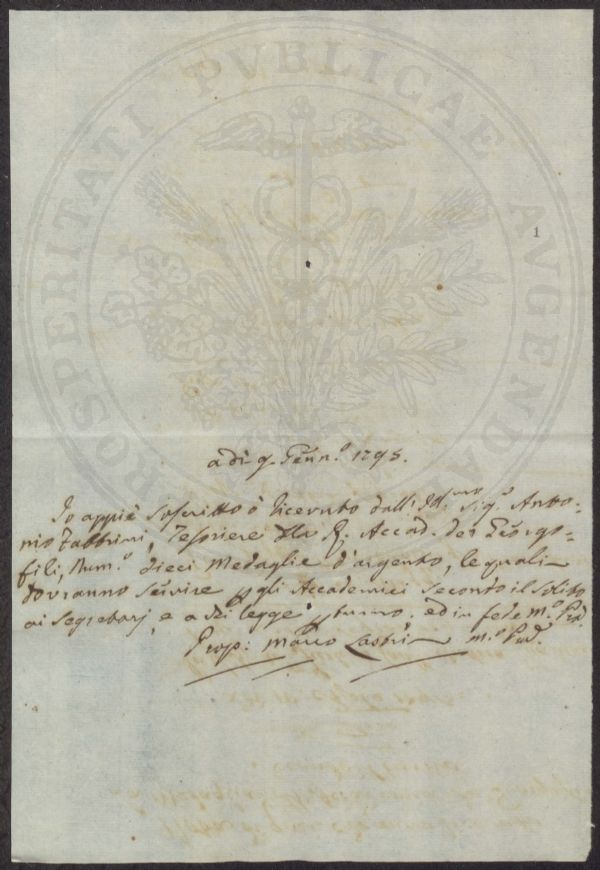 PROSPERITATI PVBLICAE AVGENDAE
1
adì 9 Genn.o 1795.
Io appiè soscritto ò ricevuto dall' Ill.mo Sig.r Anto-
nio Fabbrini, Tesoriere dlla R. Accad. dei Georgo-
fili, Num.o dieci Medaglie d'argento, le quali
dovranno servire p gli Accademici secondo il solito
ai Segretarj, e a chi legge p turno, ed in fede M.o Pp.a
Prop: Marco Lastri M.o Pp.a